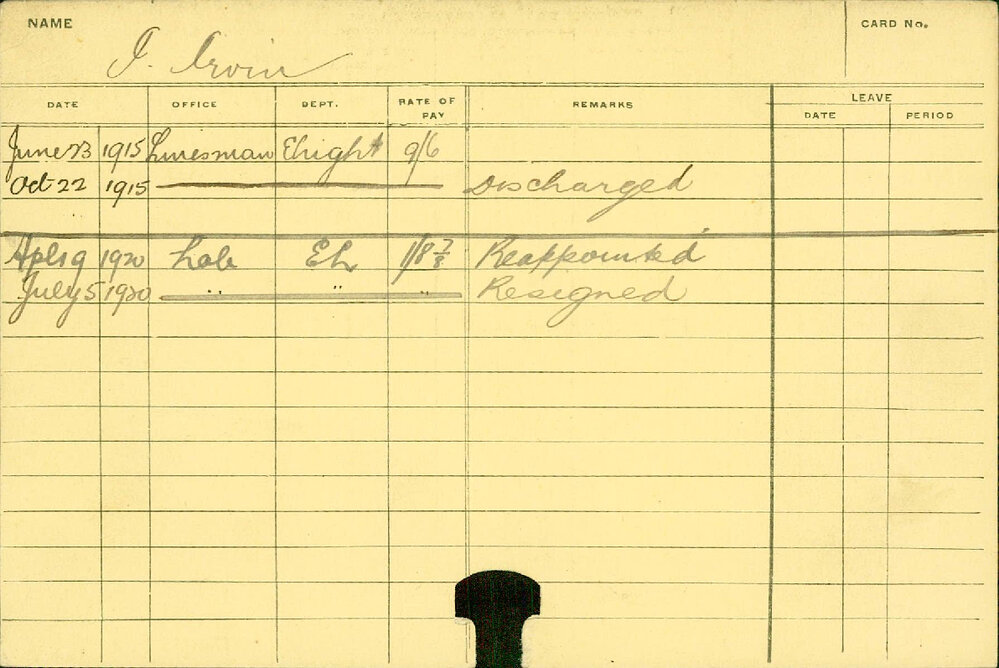 NAME
CARD No.
J. Irvin
DATE OFFICE DEPT. RATE OF PAY REMARKS LEAVE
DATE PERIOD
June 23 1915 Linesman Elight 9/6
Oct 22 1915 Discharged
Apl 19 1920 Lab EL 1/8 7/8 Reappointed
July 5 1920 " " " Resigned